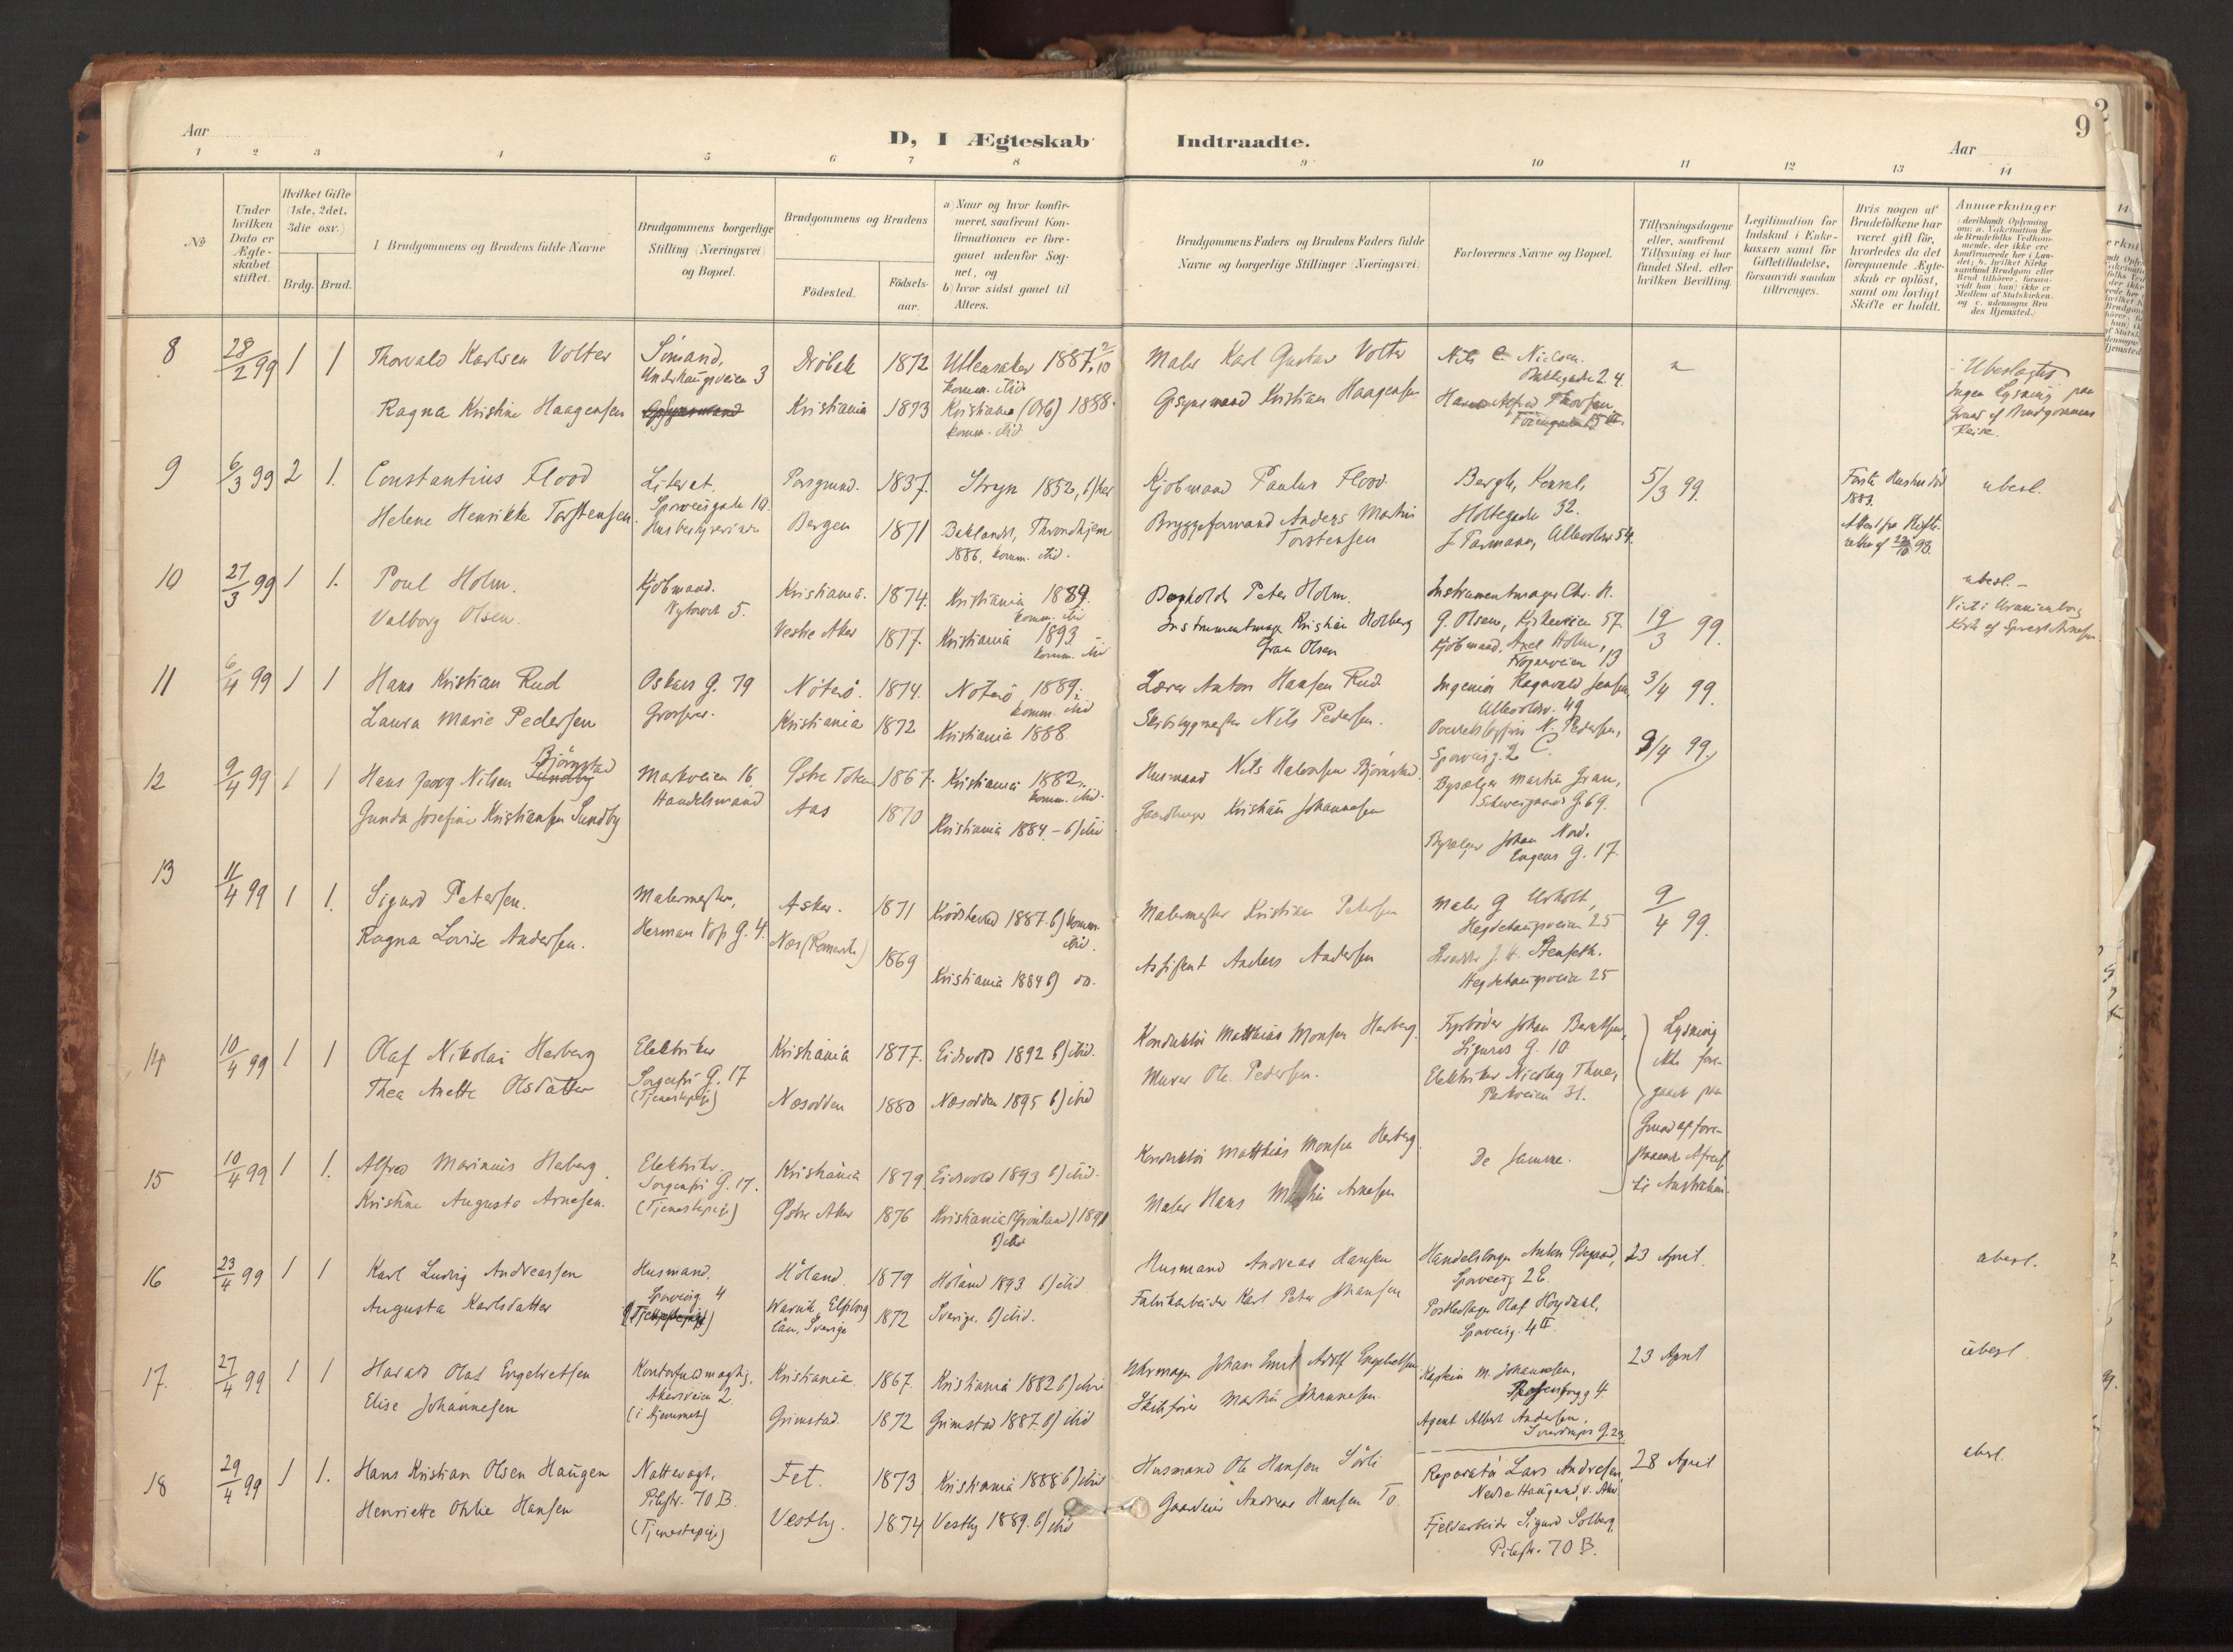 9
Aar
D, I Ægteskab Indtraadte.
Aar
1 2 3 4 5 6 7 8 9 10 11 12 13 14
No
Under hvilken Dato er Ægteskabet stiftet.
Hvilket Gifte (1ste, 2det, 3die osv.)
Brdg. Brud.
I Brudgommens og Brudens fulde Navne
Brudgommens borgerlige Stilling (Næringsvei) og Bopæl.
Brudgommens og Brudens
Födested.
Födselsaar.
a) Naar og hvor konfirmeret, saafremt Konfirmationen er foregaaet udenfor Sognet, og
b) hvor sidst gaaet til Alters.
Brudgommens Faders og Brudens Faders fulde Navne og borgerlige Stillinger (Næringsvei)
Forlovernes Navne og Bopæl.
Tillysningsdagene eller, saafremt Tillysning ei har fundet Sted, efter hvilken Bevilling.
Legitimation for Indskud i Enkekassen samt for Giftetilladelse, forsaavidt saadan tiltrænges.
Hvis nogen af Brudefolkene har været gift för, hvorledes da det foregaaende Ægteskab er oplöst, samt om lovligt Skifte er holdt.
Anmærkninger
8 28/2 99 1 1 Thorvald Karlsen Volter
Sömand,
Dröbak 1872 Ullensaker 1887 2/10
komm. ibid
Maler Karl Gustav Volter
Nils C. Nielsen.
Ubeslægtet
Ingen Lysning paa Grund af Brudgommens Reise.
Ragna Kristine Haagensen
Kristiania 1873 Kristiania (Oslo) 1888.
komm. ibid
Kristian Haagensen
9 6/3 99 2 1. Constantius Flood
Literat.
Sporveisgade 10.
Porsgrund. 1837. Stryn 1852, b) her
Kjöbmand Paulus Flood.
Bergh, Konsul,
Holtegade 32.
5/3 99.
Förste Hustru död 1883.
ubesl.
Helene Henrikke Torstensen.
Husbestyrerinde
Bergen 1871 Baklandet, Throndhjem
1886, komm. ibid.
Bryggeformand Anders Martin Torstensen
10 27/3 99 1 1. Poul Holm.
Kjöbmand.
Kristiania. 1874. Kristiania 1889.
komm. ibid
Bogholder Peter Holm.
Instrumentmager Chr. H.
G. Olsen, Kirkeveien 57.
19/3 99.
ubesl. -
Valborg Olsen.
Vestre Aker 1877. Kristiania 1893
komm. ibid
Instrumentmager Kristian Holberg
Gran Olsen
Kjöbmand, Axel Holm,
Frognerveien 13
11 6/4 99 1 1 Hans Kristian Rud
Oskars G. 79
Grosserer.
Nöterö. 1874. Nöterö 1889;
komm. ibid
Lærer Anton Hansen Rud.
Ingeniör Ragnvald Jensen,
49
3/4 99.
Laura Marie Pedersen
Kristiania 1872 Kristiania 1888
Skibsbygmester Nils Pedersen.
N. Pedersen,
Sporveisg. 2 C.
12 9/4 99 1 1 Hans Georg Nilsen Björnstad
Markveien 16
Handelsmand
Östre Toten 1867. Kristiania 1882.
komm. ibid.
Husmand Nils Halvorsen Björnstad.
Bysælger Martin Gran,
Schweigaards G. 69.
9/4 99.
Gunda Josefine Kristiansen Sundby
Aas 1870 Kristiania 1884. - b) ibid
Gaardbruger Kristian Johannesen
Bysælger Johan Nord.
Eugens G. 17.
13 11/4 99 1 1. Sigurd Petersen.
Malermester,
Herman Foss G. 4.
Asker. 1871 Krödsherad 1887. b) komm.
ibid.
Malermester Kristian Petersen
Maler G
Hegdehaugsveien 25
9/4 99.
Ragna Lovise Andersen.
Næs (Romerike) 1869 Kristiania 1884 b) do.
Assistent Anders Andersen
Hegdehaugsveien 25
14 10/4 99 1 1 Olaf Nikolai Herberg
Elektriker
Sorgenfri G. 17
(Tjenestepige)
Kristiania 1877. Eidsvold 1892 b) ibid.
Konduktör Matthias Monsen Herberg.
Fyrböder Johan Berntsen,
Sigurds G. 10
Lysning ikke foregaaet paa Grund af forestaaende Afreise til Australien.
Thea Anette Olsdatter
Næsodden 1880 Næsodden 1895 b) ibid
Murer Ole Pedersen.
Elektriker Nicolay Thue,
Parkveien 31.
15 10/4 99 1 1. Alfred Marinius Heberg.
Elektriker.
Sorgenfri G. 17.
(Tjenestepige)
Kristiania 1879 Eidsvold 1893 b) ibid.
Konduktör Matthias Monsen Herberg.
De samme.
Kristine Augusta Arnesen.
Östre Aker 1876 Kristiania (Grönland) 1891
b) ibid
Maler Hans Martin Arnesen
16 23/4 99 1 1 Karl Ludvig Andreassen
Husmand,
Sporveisg. 4
Höland. 1879 Höland 1893 b) ibid
Husmand Andreas Hansen
Handelsborger Anton Ödegaard,
Sporveisg 2 E.
23 April.
ubesl.
Augusta Karlsdatter
Elfsborg län, Sverige
1872 Sverige. b) ibid.
Fabrikarbeider Karl Peter Johansen
Postbetjent Olaf Höydahl,
Sporveisg. 4 II.
17. 27/4 99 1 1 Harald Olaf Engebretsen
Kontorfuldmægtig,
Akersveien 2.
(i Hjemmet)
Kristiania. 1867. Kristiania 1882 b) ibid
Urmager Johan Emil Adolf Engebretsen
Kaptein M. Johannesen,
23 April
ubesl.
Elise Johannesen
Grimstad. 1872 Grimstad 1887. b) ibid
Skibsförer Martin Johannesen.
Agent Albert Andersen,
Sverdrups G. 23
18 29/4 99 1 1. Hans Kristian Olsen Haugen
Nattevagt,
Pilestr. 70 B.
(Tjenestepige)
Fet. 1873 Kristiania 1888 b) ibid
Husmand Ole Hansen Sörli
Reparatör Lars Andresen,
28 April
ubesl.
Henriette Othilie Hansen
Vestby. 1874 Vestby 1889. b) ibid
Gaardeier Andreas Hansen To.
Fjeldarbeider Sigurd Solberg,
Pilestr. 70 B.